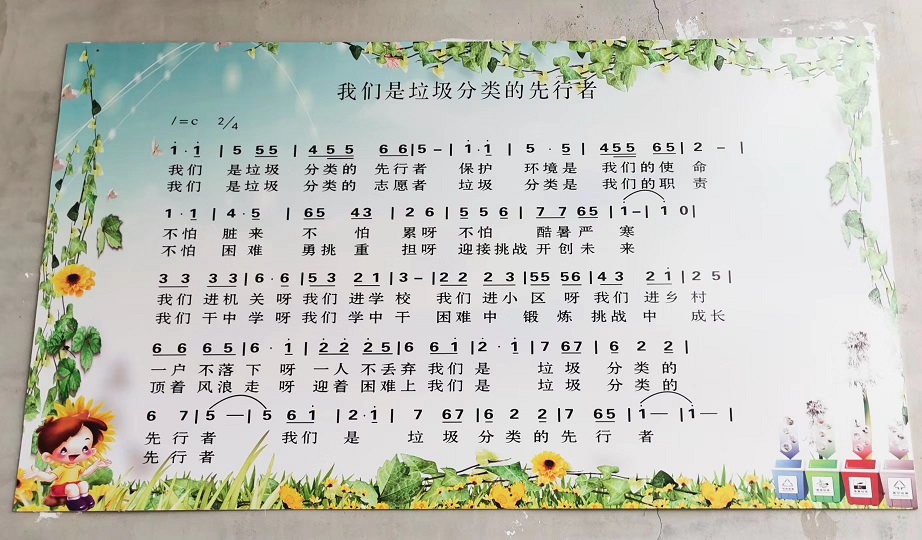 我们是垃圾分类的先行者
1=c 2/4
1·1 | 5 55 | 455 66 | 5 – | 1·1 | 5 · 5 | 455 65 | 2 – |
我们 是垃圾 分类的 先行者 保护 环境是 我们的使 命
我们 是垃圾 分类的 志愿者 垃圾 分类是 我们的职 责
1·1 | 4·5 | 65 43 | 2 6 | 5 5 6 | 7 7 65 | 1– | 1 0 |
不怕 脏来 不 怕 累呀 不怕 酷暑严 寒
不怕 困难 勇挑 重 担呀 迎接挑战 开创未 来
3 3 3 3 | 6·6 | 5 3 2 1 | 3 – | 2 2 2 3 | 55 56 | 4 3 2 1 | 2 5 |
我们 进机 关呀 我们 进学 校 我们 进小 区 呀 我们 进乡 村
我们 干中 学呀 我们 学中 干 困难 中 锻 炼 挑战 中 成长
6 6 6 5 | 6 · 1 | 2 2 2 5 | 6 6 1 | 2 · 1 | 7 67 | 6 2 2 |
一户 不落 下 呀 一人 不丢弃 我们 是 垃 圾 分 类 的
顶着 风浪 走 呀 迎着 困难上 我们 是 垃 圾 分 类 的
6 7 | 5 — | 5 6 1 | 2·1 | 7 67 | 6 2 2 | 7 65 | 1— | 1— |
先 行 者 我们 是 垃 圾 分 类 的 先 行 者
先 行 者